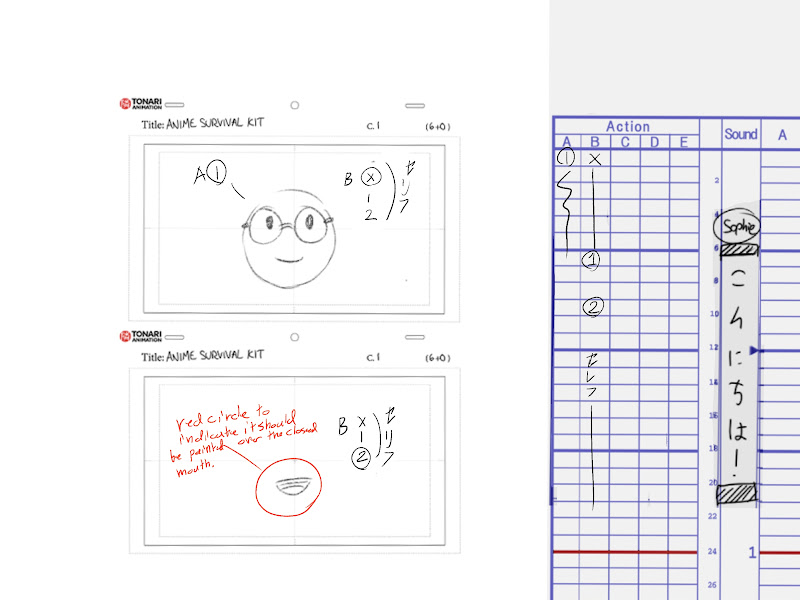 TONARI
ANIMATION
Title: ANIME SURVIVAL KIT C. 1 (6+0)
A①
B ⓧ
1
2
セリフ
TONARI
ANIMATION
Title: ANIME SURVIVAL KIT C. 1 (6+0)
red circle to
indicate it should
be painted over the closed
mouth.
B X
1
②
セリフ
Action Sound A
A B C D E
① X
①
②
セリフ
Sophie
こんにちは!
2
4
6
8
10
12
14
16
18
20
22
24 1
26